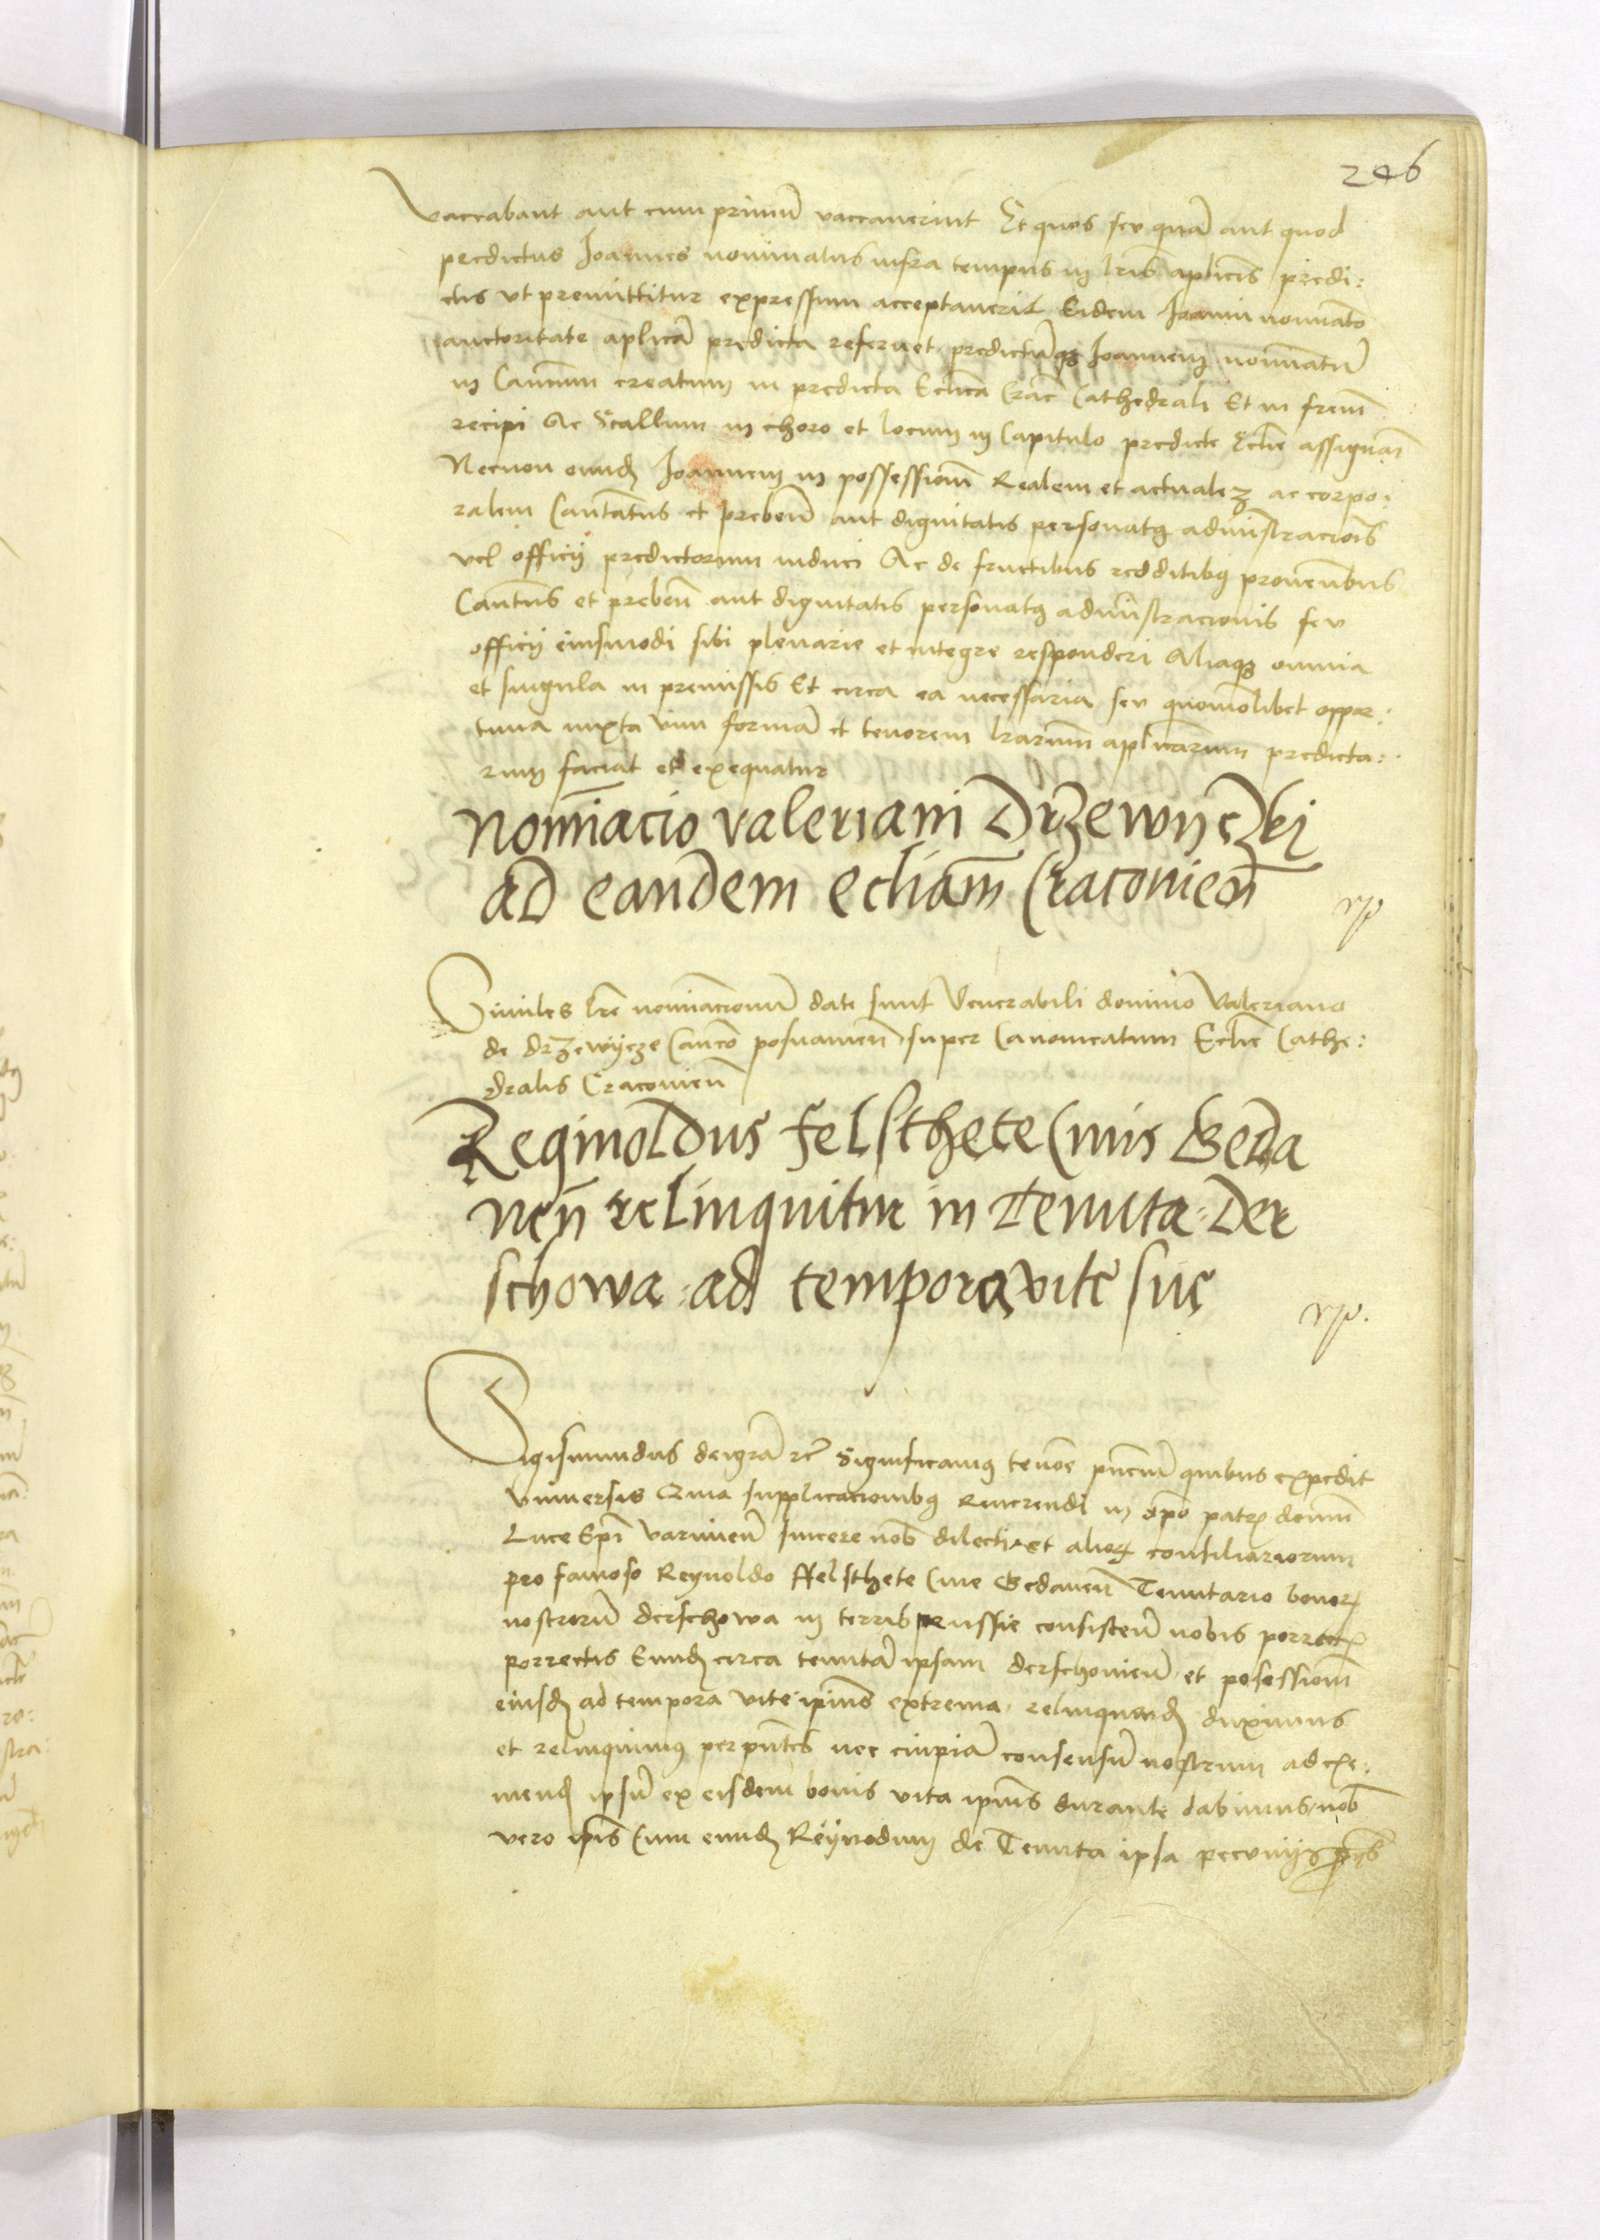 246
vaccabant aut cum primũ vaccaverint Et quos seu quã aut quod
predictus Joannes nominatus infra tempus in lris aplicis predi:
ctis vt premittitur expressum acceptaverit Eidem Joanni nominato
auctoritate aplica predicta reservet predictũqz Joannem nominatũ
in Canonicum creatum in predicta Ecclia Crac Cathedrali Et in frem
recipi Ac Stallum in choro et locum in Capitulo predicte Ecclie assignari
Necnon eund Joannem in possessionem Realem et actualez ac corpo:
ralem Canonicatus et prebend aut dignitatis personatus administracionis
vel officij predictorum induci Ac de fructibus redditibus proventibus
Canonicatus et prebend aut dignitatis personatus administracionis seu
officij eiusmodi sibi plenarie et integre responderi Aliaqz omnia
et singula in premissis Et circa ea necessaria seu quomolibet oppor:
tuna iuxta vim formã et tenorem lrarum aplicarum predicta:
rum faciat et exequatur
Nominacio Valeriani Drzewyczki
ad eandem eccliam Cracovien
rp
Similes lre nominacionum date sunt Venerabili domino Valeriano
de Drzewycze Canco posnanien super Canonicatum Ecclie Cathe:
dralis Cracovien
Reginoldus Felsthete Civis Geda
nen relinquitur in Tenuta Der
schowa ad tempora vite sue
rp.
Sigismundus dei gra rc Significamus tenore pntium quibus expedit
vniversis Quia supplicacionibus Reverendi in xpo patris domini
Luce Epi Varmien sincere nob dilecti et alior consiliariorum
pro famoso Reynoldo Felsthete Cive Gedanen Tenutario bonor
nostrorũ derschowa in terris prussie consisten nobis porrectis
porrectis Eund circa tenutã ipsam derschovien et possessionem
eiusd ad tempora vite ipius extrema relinquend duximus
et relinquimus per pntes nec cuipiã consensũ nostrum ad exi:
mend ipsũ ex eisdem bonis vita ipius durante dabimus nob
vero ipis Cum eund Reynodum de Tenuta ipsa pecunijs